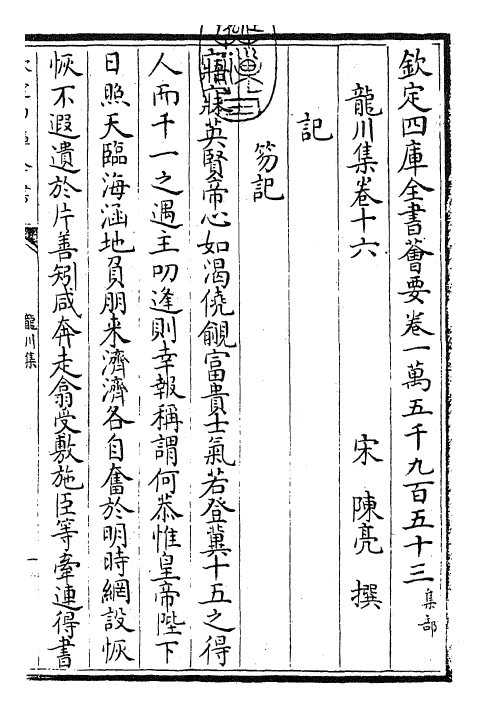 欽定四庫全書薈要卷一萬五千九百五十三 集部
龍川集卷十六 宋 陳亮 撰
記
笏記
寤寐英賢帝心如渴僥覦富貴士氣若登冀十五之得
人而千一之遇主叨逢則幸報稱謂何恭惟皇帝陛下
日照天臨海涵地負朋来濟濟各自奮於明時網設恢
恢不遐遺於片善矧咸奔走翕受敷施臣等牽連得書
龍川集
一